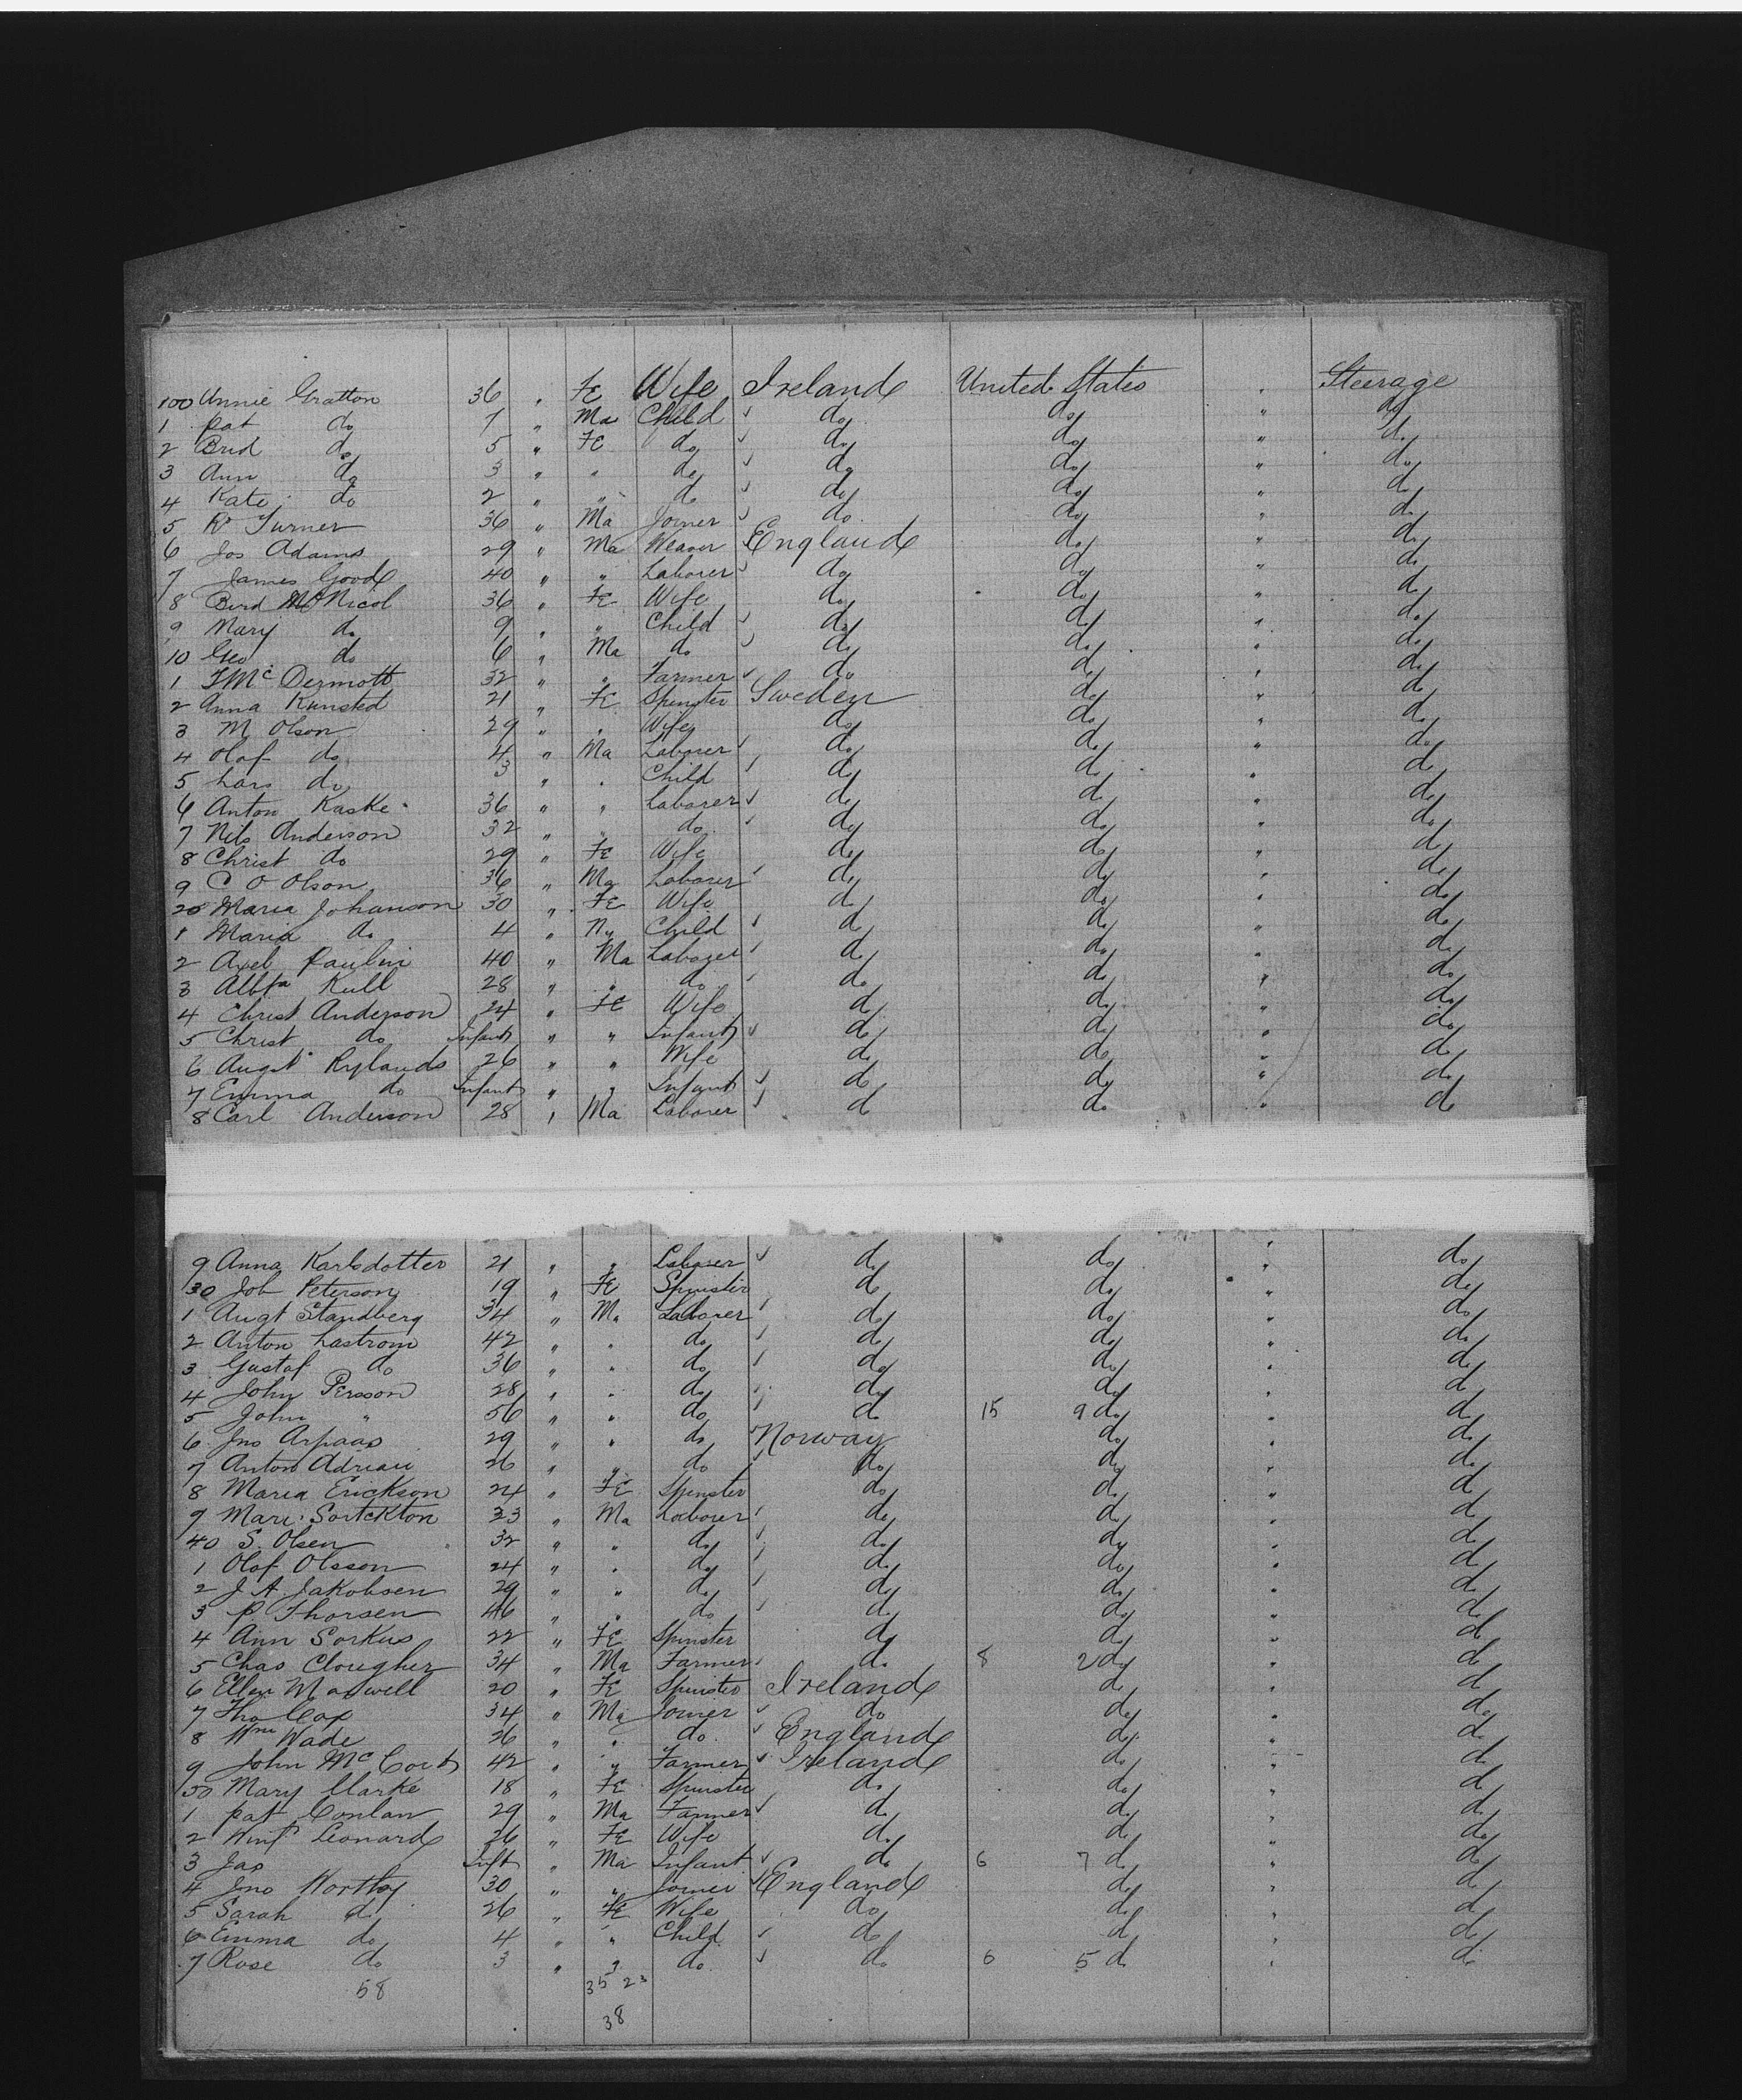 100 Annie Gratton 36 " Fe Wife Ireland United States " Steerage
1 Pat do 7 " Ma Child do do " do
2 Brid do 5 " Fe do do do " do
3 Ann do 3 " " do do do " do
4 Kate do 2 " " do do do " do
5 Rt Turner 36 " Ma Joiner do do " do
6 Jos Adams 29 " Ma Weaver England do " do
7 James Good 40 " " Laborer do do " do
8 Bird McNicol 36 " Fe Wife do do " do
9 Mary do 9 " " Child do do " do
10 Geo do 6 " Ma do do do " do
1 F McDermott 32 " " Farmer do do " do
2 Anna Runsted 21 " Fe Spinster Sweden do " do
3 M Olson 29 " " Wife do do " do
4 Olof do 4 " Ma Laborer do do " do
5 Lars do 3 " " Child do do " do
6 Anton Kaske 36 " " Laborer do do " do
7 Nils Anderson 32 " " do do do " do
8 Christ do 29 " Fe Wife do do " do
9 C O Olson 36 " Ma Laborer do do " do
20 Maria Johanson 30 " Fe Wife do do " do
1 Maria do 4 " " Child do do " do
2 Axel Paulin 40 " Ma Laborer do do " do
3 Albta Kull 28 " " do do do " do
4 Christ Anderson 24 " Fe Wife do do " do
5 Christ do Infant " " Infant do do " do
6 Augst Rylands 26 " " Wife do do " do
7 Emma do Infant " " Infant do do " do
8 Carl Anderson 28 " Ma Laborer do do " do
9 Anna Karlsdotter 21 " " Laborer do do " do
30 Joh Peterson 19 " Fe Spinster do do " do
1 Augt Standberg 34 " Ma Laborer do do " do
2 Anton Lastrom 42 " " do do do " do
3 Gustaf do 36 " " do do do " do
4 John Persson 28 " " do do do " do
5 John " 56 " " do do 15 9 do " do
6 Jno Arpaas 29 " " do Norway do " do
7 Anton Adrian 26 " " do do do " do
8 Maria Erickson 24 " Fe Spinster do do " do
9 Mari Sortckton 33 " Ma Laborer do do " do
40 S. Olsen 32 " " do do do " do
1 Olof Olsson 24 " " do do do " do
2 J A Jakobsen 29 " " do do do " do
3 P Thorsen 46 " " do do do " do
4 Ann Sorkus 22 " Fe Spinster do do " do
5 Chas Clougher 34 " Ma Farmer do 8 2 do " do
6 Ellen Maxwell 20 " Fe Spinster Ireland do " do
7 Tho Cox 34 " Ma Joiner do do " do
8 Wm Wade 26 " " do England do " do
9 John McCort 42 " " Farmer Ireland do " do
50 Mary Clarke 18 " Fe Spinster do do " do
1 Pat Conlan 29 " Ma Farmer do do " do
2 Winf Leonard 26 " Fe Wife do do " do
3 Jas Inft " Ma Infant do 6 7 do " do
4 Jno Worthy 30 " " Joiner England do " do
5 Sarah do 26 " Fe Wife do do " do
6 Emma do 4 " " Child do do " do
7 Rose do 3 " " do do 6 5 do " do
58 35 23
38